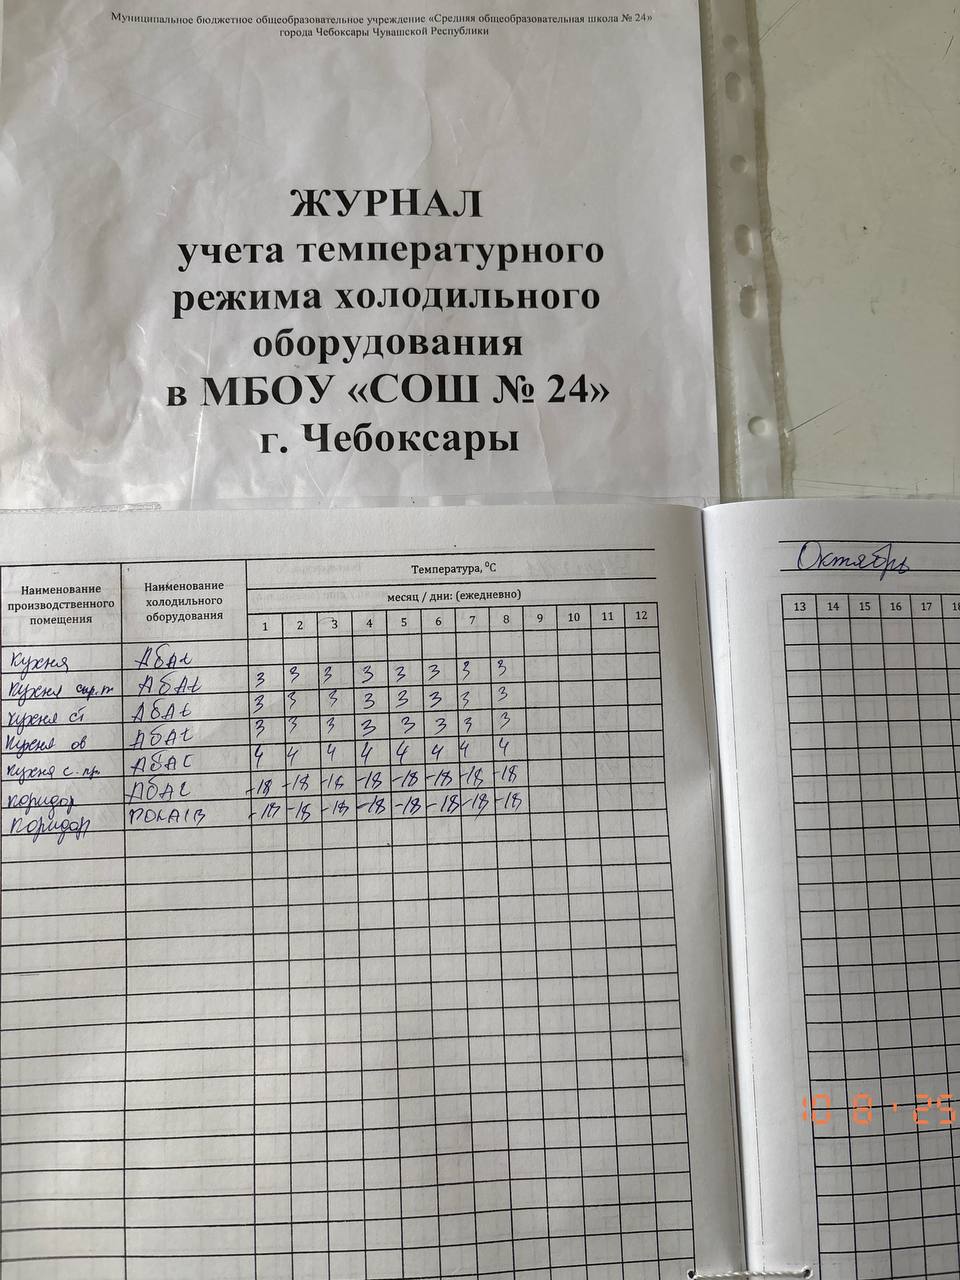 Муниципальное бюджетное общеобразовательное учреждение «Средняя общеобразовательная школа № 24»
города Чебоксары Чувашской Республики
ЖУРНАЛ
учета температурного
режима холодильного
оборудования
в МБОУ «СОШ № 24»
г. Чебоксары
Октябрь
Наименование производственного помещения
Наименование холодильного оборудования
Температура, ⁰С
месяц / дни: (ежедневно)
1 2 3 4 5 6 7 8 9 10 11 12
13 14 15 16 17 18
Кухня АБАТ
Кухня АБАТ 3 3 3 3 3 3 3 3
Кухня ст АБАТ 3 3 3 3 3 3 3 3
Кухня ов АБАТ 3 3 3 3 3 3 3 3
Кухня с. пр. АБАТ 4 4 4 4 4 4 4 4
Коридор АБАТ -18 -18 -18 -18 -18 -18 -18 -18
Коридор -18 -18 -18 -18 -18 -18 -18 -18
10 8 ' 25